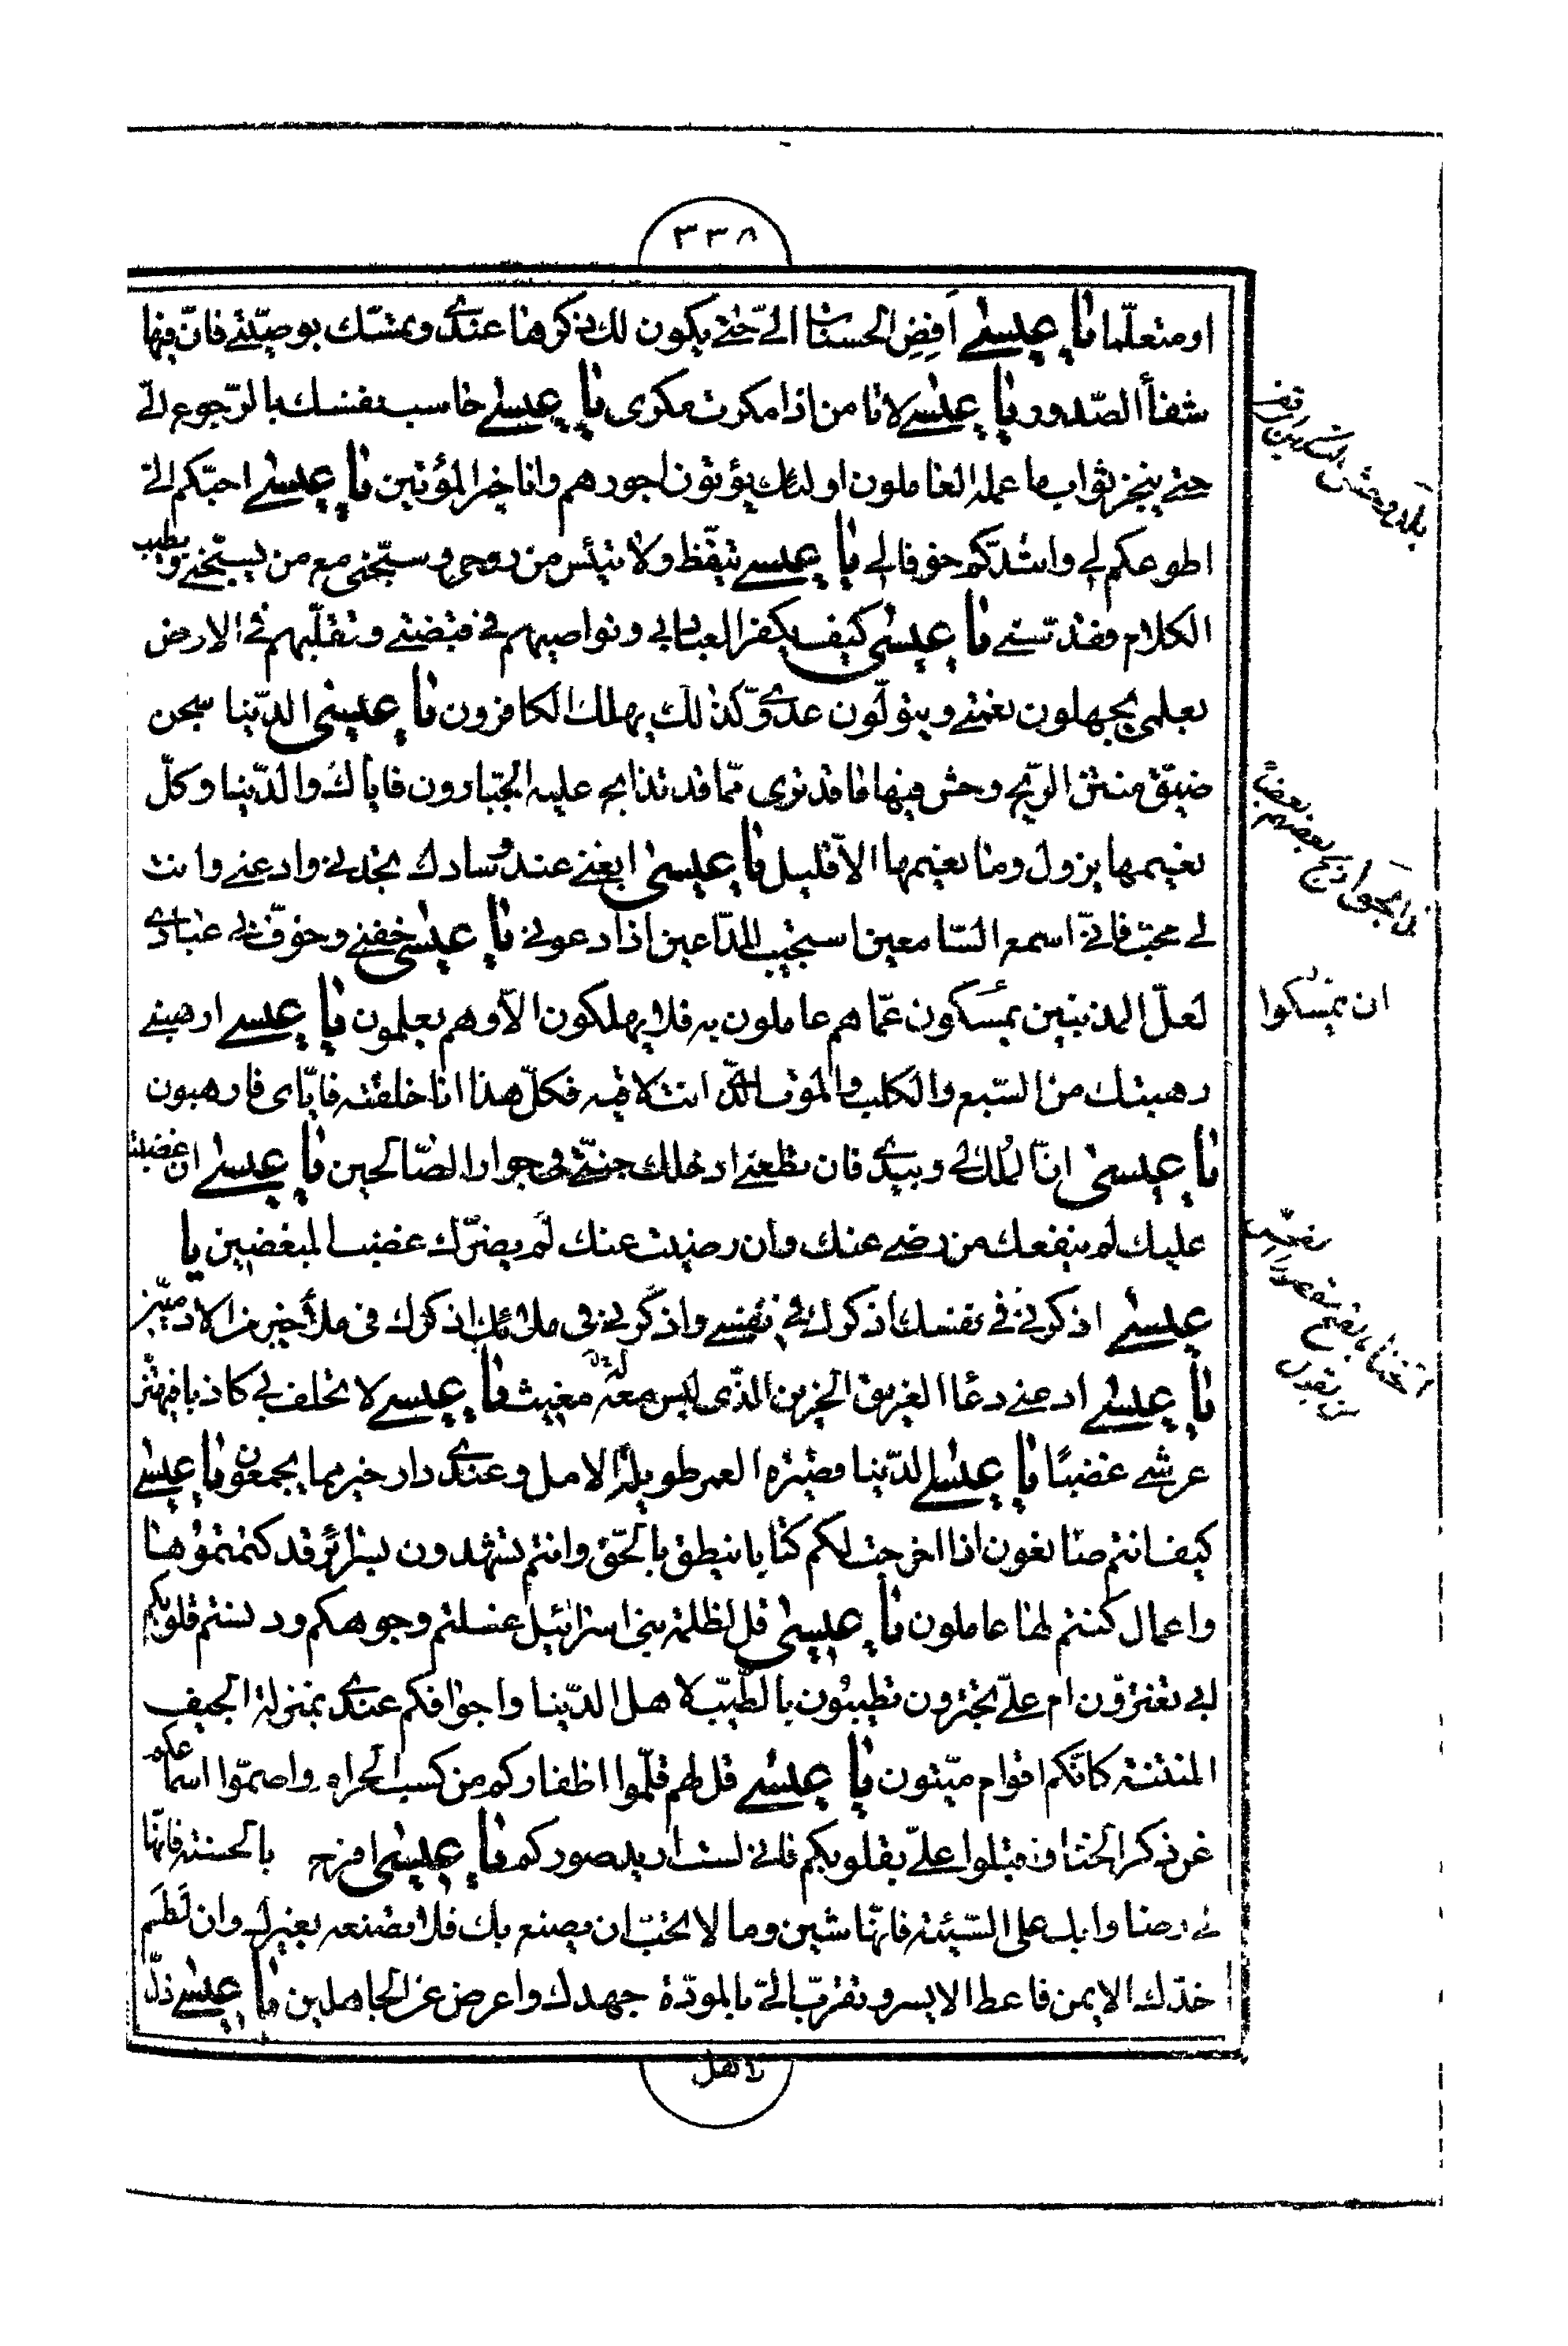 ٣٣٨
او متعلّما يا عيسى أفِضِ الحسنات الىّ حتى يكون لك ذكرها عندى وتمسّك بوصيّتى فانّ فيها
شفاءً الصّدور يا عيسى لا تامن اذا مكرت مكرى يا عيسى حاسب نفسك بالرّجوع الىّ
حتى ينجز ثواب ما عمله العاملون اولئك يؤتون اجورهم وانا خير المؤتين يا عيسى احبّكم الىّ
اطوعكم لى واشدّكم خوفا لى يا عيسى تيقّظ ولا تيئس من روحى وسبّحنى مع من يسبّحنى وبطيب
الكلام فقدّسنى يا عيسى كيف يكفر العباد بى ونواصيهم فى قبضتى وتقلّبهم فى الارض
بعلمى يجهلون نعمتى ويتولّون عدوّى وكذلك يهلك الكافرون يا عيسى الدّنيا سجن
ضيّق منتن الرّيح وحش فيها ما قد ترى ممّا قد تذابح عليه الجبّارون فاياك والدّنيا وكلّ
نعيمها يزول وما نعيمها الاّ قليل يا عيسى ابغنى عند وسادك تجدنى وادعنى وانت
لى محبّ فانّى اسمع السّامعين استجيب للدّاعين اذا دعونى يا عيسى خفنى وخوّف بى عبادى
لعلّ المذنبين يمسكون عمّا هم عاملون به فلا يهلكون الاّ وهم يعلمون يا عيسى ارهبنى
ان يمسكوا
رهبتك من السّبع والكلب والموت الّذى انت لاقيه فكلّ هذا انا خلقته فايّاى فارهبون
يا عيسى انّ الملك لى وبيدى فان تطعنى ادخلك جنّتى فى جوار الصّالحين يا عيسى ان غضبت
عليك لم ينفعك من رضى عنك وان رضيت عنك لم يضرّك غضب المبغضين يا
عيسى اذكرنى فى نفسك اذكرك فى نفسى واذكرنى فى ملائك اذكرك فى ملأ خير من الآدميّين
يا عيسى ادعنى دعاء الغريق الحزين الذّى ليس معه مغيث يا عيسى لا تحلف بى كاذبا فيهتزّ
عرشى غضبًا يا عيسى الدّنيا قصيرة العمر طويلة الامل وعندى دار خير مما يجمعون يا عيسى
كيف انتم صانعون اذا اخرجت لكم كتابا ينطق بالحّق وانتم تشهدون بسرائر قد كتمتموُها
واعمال كنتم لها عاملون يا عيسى قل لظلمة بنى اسرائيل غسلتم وجوهكم ودنستم قلوبكم
ابى تغترّون ام علىّ تجترون تطيبوُن بالطّيب لاهل الدّنيا واجوافكم عندى بمنزلة الجيف
المنتنة كانّكم اقوام ميّتون يا عيسى قل لهم قلّموا اظفاركم من كسب الحرام واصمّوا اسماعكم
عن ذكر الخنا واقبلوا علىّ بقلوبكم فانى لست اريد صوركم يا عيسى افرح بالحسنة فانها
لى رضا وابك على السّيئة فانّها شين وما لا تحبّ ان يصنع بك فلا تصنعه بغيرك وان لَطَم
خدّك الايمن فاعط الايسر وتقرّب الىّ بالمودّة جهدك واعرض عن الجاهلين يا عيسى ذلّ